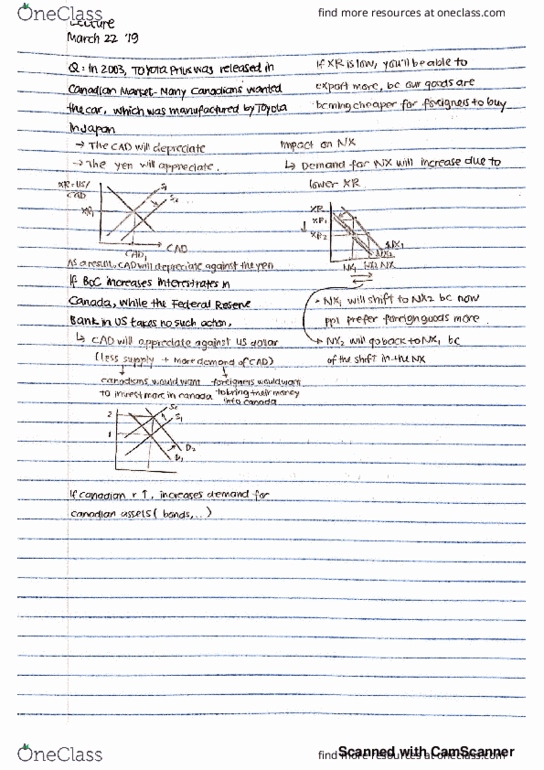 OneClass
find more resources at oneclass.com
Lecture
March 22 '19
Q: In 2003, Toyota Prius was released in
Canadian Market. Many Canadians wanted
the car, which was manufactured by Toyota
in Japan
→ The CAD will depreciate
→ The yen will appreciate.
XR = US/
CAD
XR1
S1
S2
CAD1
CAD
As a result, CAD will depreciate against the yen
If BoC increases interest rates in
Canada, while the Federal Reserve
Bank in US takes no such action,
↳ CAD will appreciate against US dollar
(less supply + more demand of CAD)
canadians would want
to invest more in canada
foreigners would want
to bring their money
into canada
2
1
S2
S1
D2
D1
If canadian r ↑, increases demand for
canadian assets (bonds,...)
If XR is low, you'll be able to
export more, bc our goods are
becoming cheaper for foreigners to buy
impact on NX
↳ Demand for NX will increase due to
lower XR
XR
XR1
XR2
NX1
NX2
NX1
NX2 NX
• NX1 will shift to NX2 bc now
ppl prefer foreign goods more.
• NX2 will go back to NX1 bc
of the shift in the NX
OneClass
find more resources at oneclass.com
Scanned with CamScanner